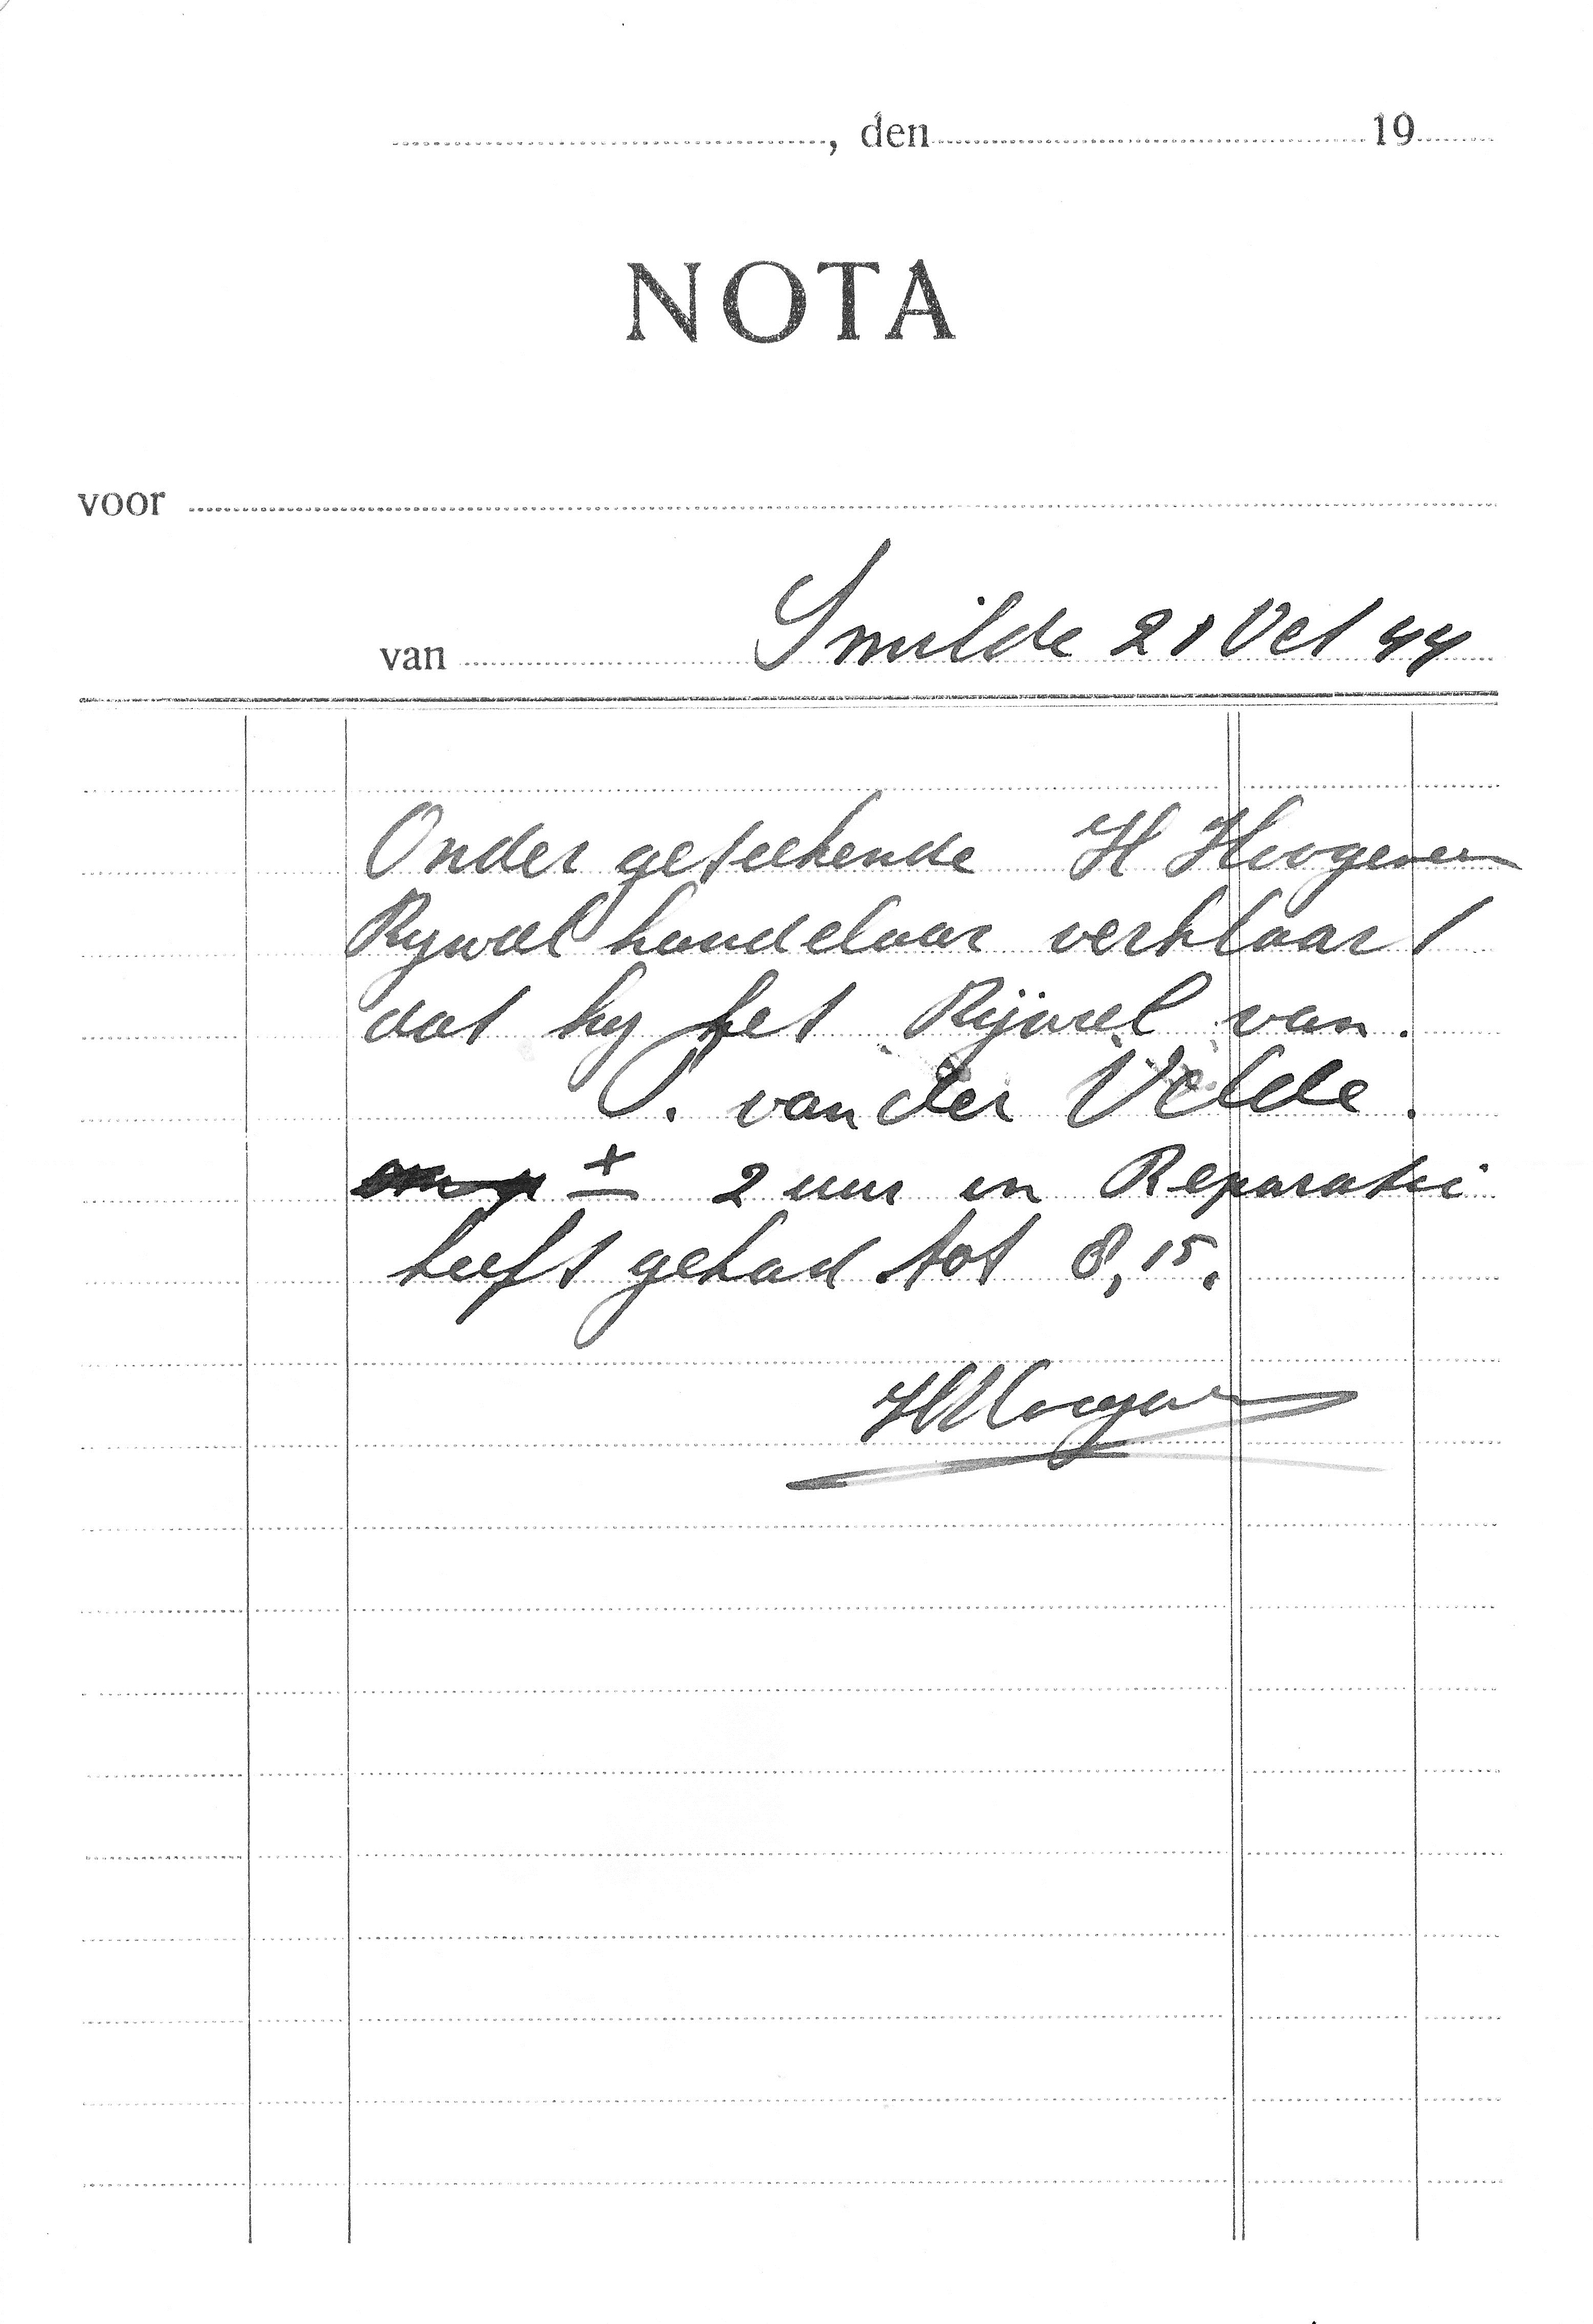 , den 19
NOTA
voor
van Smilde 21 Oct 44
Onder geteekende H Hoogeveen
Rywiel handelaar verklaart
dat hy het Rijwiel van.
P. van der Velde.
± 2 uur in Reparatie
heeft gehad tot 8,15.